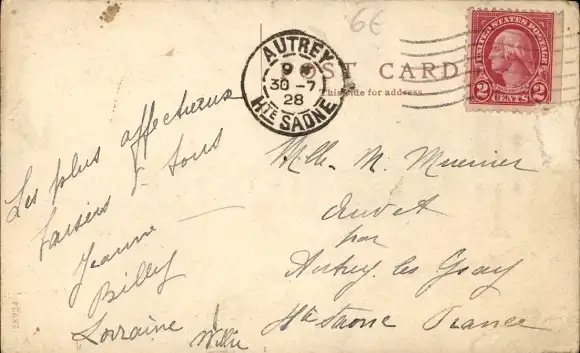 6€
POST CARD
This side for address
UNITED STATES POSTAGE
2 CENTS 2
AUTREY
30 -7
28
HTE SAONE
Les plus affectueux
baisers à tous
Jeanne
Billy
Lorraine
Willie
Mlle. M. Meunier
par
Autrey les Gray
Hte Saone France
28924